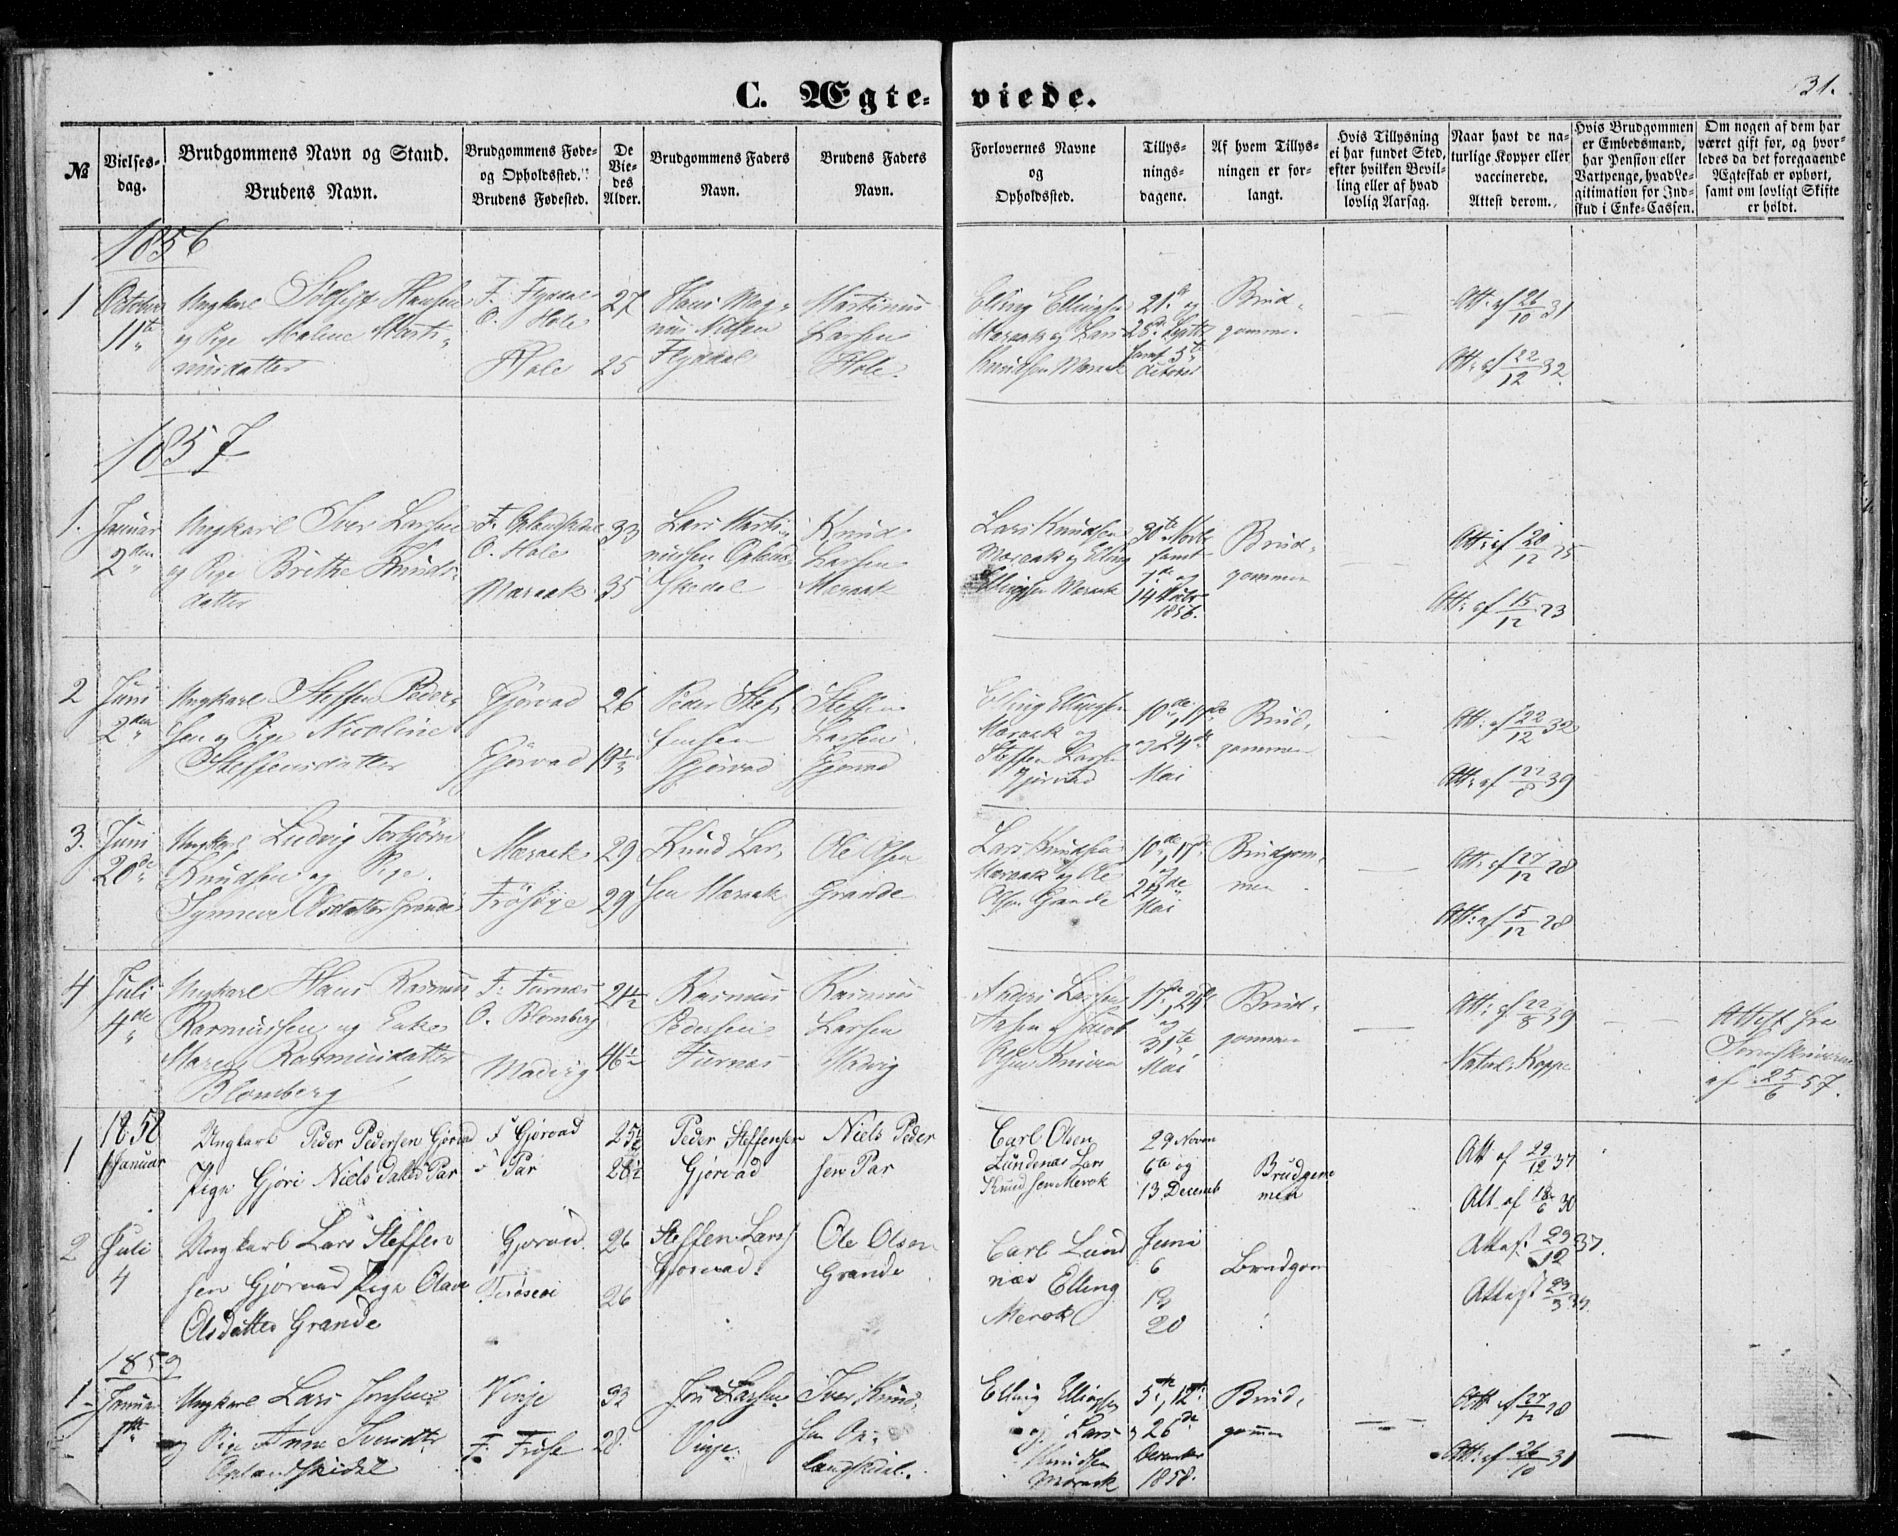 C. Ægte-
viede.
31.
№
Vielses-
dag.
Brudgommens Navn og Stand.
Brudens Navn.
Brudgommens Føde-
og Opholdssted.
Brudens Fødested.
De
Vie-
des
Alder.
Brudgommens Faders
Navn.
Brudens Faders
Navn.
Forlovernes Navne
og
Opholdssted.
Tillys-
nings-
dagene.
Af hvem Tillys-
ningen er for-
langt.
Hvis Tillysning
ei har fundet Sted,
efter hvilken Bevil-
ling eller af hvad
lovlig Aarsag.
Naar havt de na-
turlige Kopper eller
vaccinerede.
Attest derom.
Hvis Brudgommen
er Embedsmand,
har Pension eller
Vartpenge, hvad Le-
gitimation for Ind-
skud i Enke-Cassen.
Om nogen af dem har
været gift før, og hvor-
ledes da det foregaaende
Ægteskab er ophørt,
samt om lovligt Skifte
er holdt.
1856
1
October
11te
Ungkarl Hansen
og Pige Malene Marti-
nusdatter
F. Flydal
O. Hole
Hole
27
25
Hans Mag-
nus Nilsen
Flydal
Martinus
Larsen
Hole.
Elling Ellingsen
Maraak og Lars
Knudsen Maraak
21de og
28de Septbr
samt 5te
October
Brud-
gommen
Att: af 26/10 31
Att: af 22/12 32.
1857
1.
Januar
2den
Ungkarl Iver Larsen
og Pige Brithe Knuds-
datter
F. Oplandskedal
O. Hole
Maraak
33
35
Lars Marti-
nussen Oplend-
skedal
Knud
Larsen
Maraak
Lars Knudsen
Maraak og Elling
Ellingsen Maraak
30te Novbr
samt
7de og
14 Decbr
1856.
Brud-
gommen
Att: af 20/12 25
Att: af 15/12 23
2
Juni
2den
Ungkarl Steffen Peder-
sen og Pige Nicoline
Steffensdatter
Gjørvad
Gjørvad
26
19½
Peder Stef-
fensen
Gjørvad
Steffen
Larsen
Gjørvad
Elling Ellingsen
Maraak og
Steffen Larsen
Gjørvad
10de, 17de
og 24de
Mai
Brud-
gommen
Att: af 22/12 32
Att: af 22/8 39
3.
Juni
20de
Ungkarl Ludvig Torbjørn
Knudsen og Pige
Synneve Olsdatter Grande
Maraak
Frösöye
29
29
Knud Lar-
sen Maraak
Ole Olsen
Grande
Lars Knudsen
Maraak og Ole
Olsen Grande
10de, 17de
og
24de
Mai
Brudgom-
men
Att: af 27/12 28
Att: af 5/12 28
4
Juli
4de
Ungkarl Hans Rasmus
Rasmussen og Enke
Maren Rasmusdatter
Blomberg
F. Furnæs
O. Blomberg
Madvig
24½
46½
Rasmus
Pedersen
Furnæs
Rasmus
Larsen
Madvig
Anders Larsen
Aasen og Jacob
17de, 24de
og
31te
Mai
Brud-
gommen
Att: af 22/8 39
Naturl. Kopper
Attest fra
Sorenskriveren
af 25/6 57.
1858
1
1 Januar
Ungkarl Peder Pedersen Gjørvad
Pige Gjøri Nielsdatter Par
F Gjørvad
F Par
25½
28½
Peder Steffensen
Gjørvad
Niels Peder
sen Par
Carl Olsen
Lundenæs Lars
Knudsen Merok
29 Novem
6te og
13 Decemb
Brudgom
men
Att af 29/12 37
Att af 18/6 30
2
Juli
4
Ungkarl Lars Steffen-
sen Gjørvad Pige Olave
Olsdatter Grande
Gjørvad
26
26
Steffen Lars
Gjørvad.
Ole Olsen
Grande
Carl Lund
næs Elling
Merok
Juni
6
13
20
Brudgom
Attest 29/12 37.
Attest
1859
1
Januar
1ste
Ungkarl Lars Jonsen
og Pige Anne Iversdtr
Oplandskidal
Vinje
F. Fröse
32
28
Jon Larsen
Vinje
Iver Knud-
sen Op-
landskidal.
Elling Ellingsen
og Lars
Knudsen
Maraak
5te, 12te
og 26de
December
1858.
Brud-
gommen
Att af 27/12 28
Att: af 26/10 31